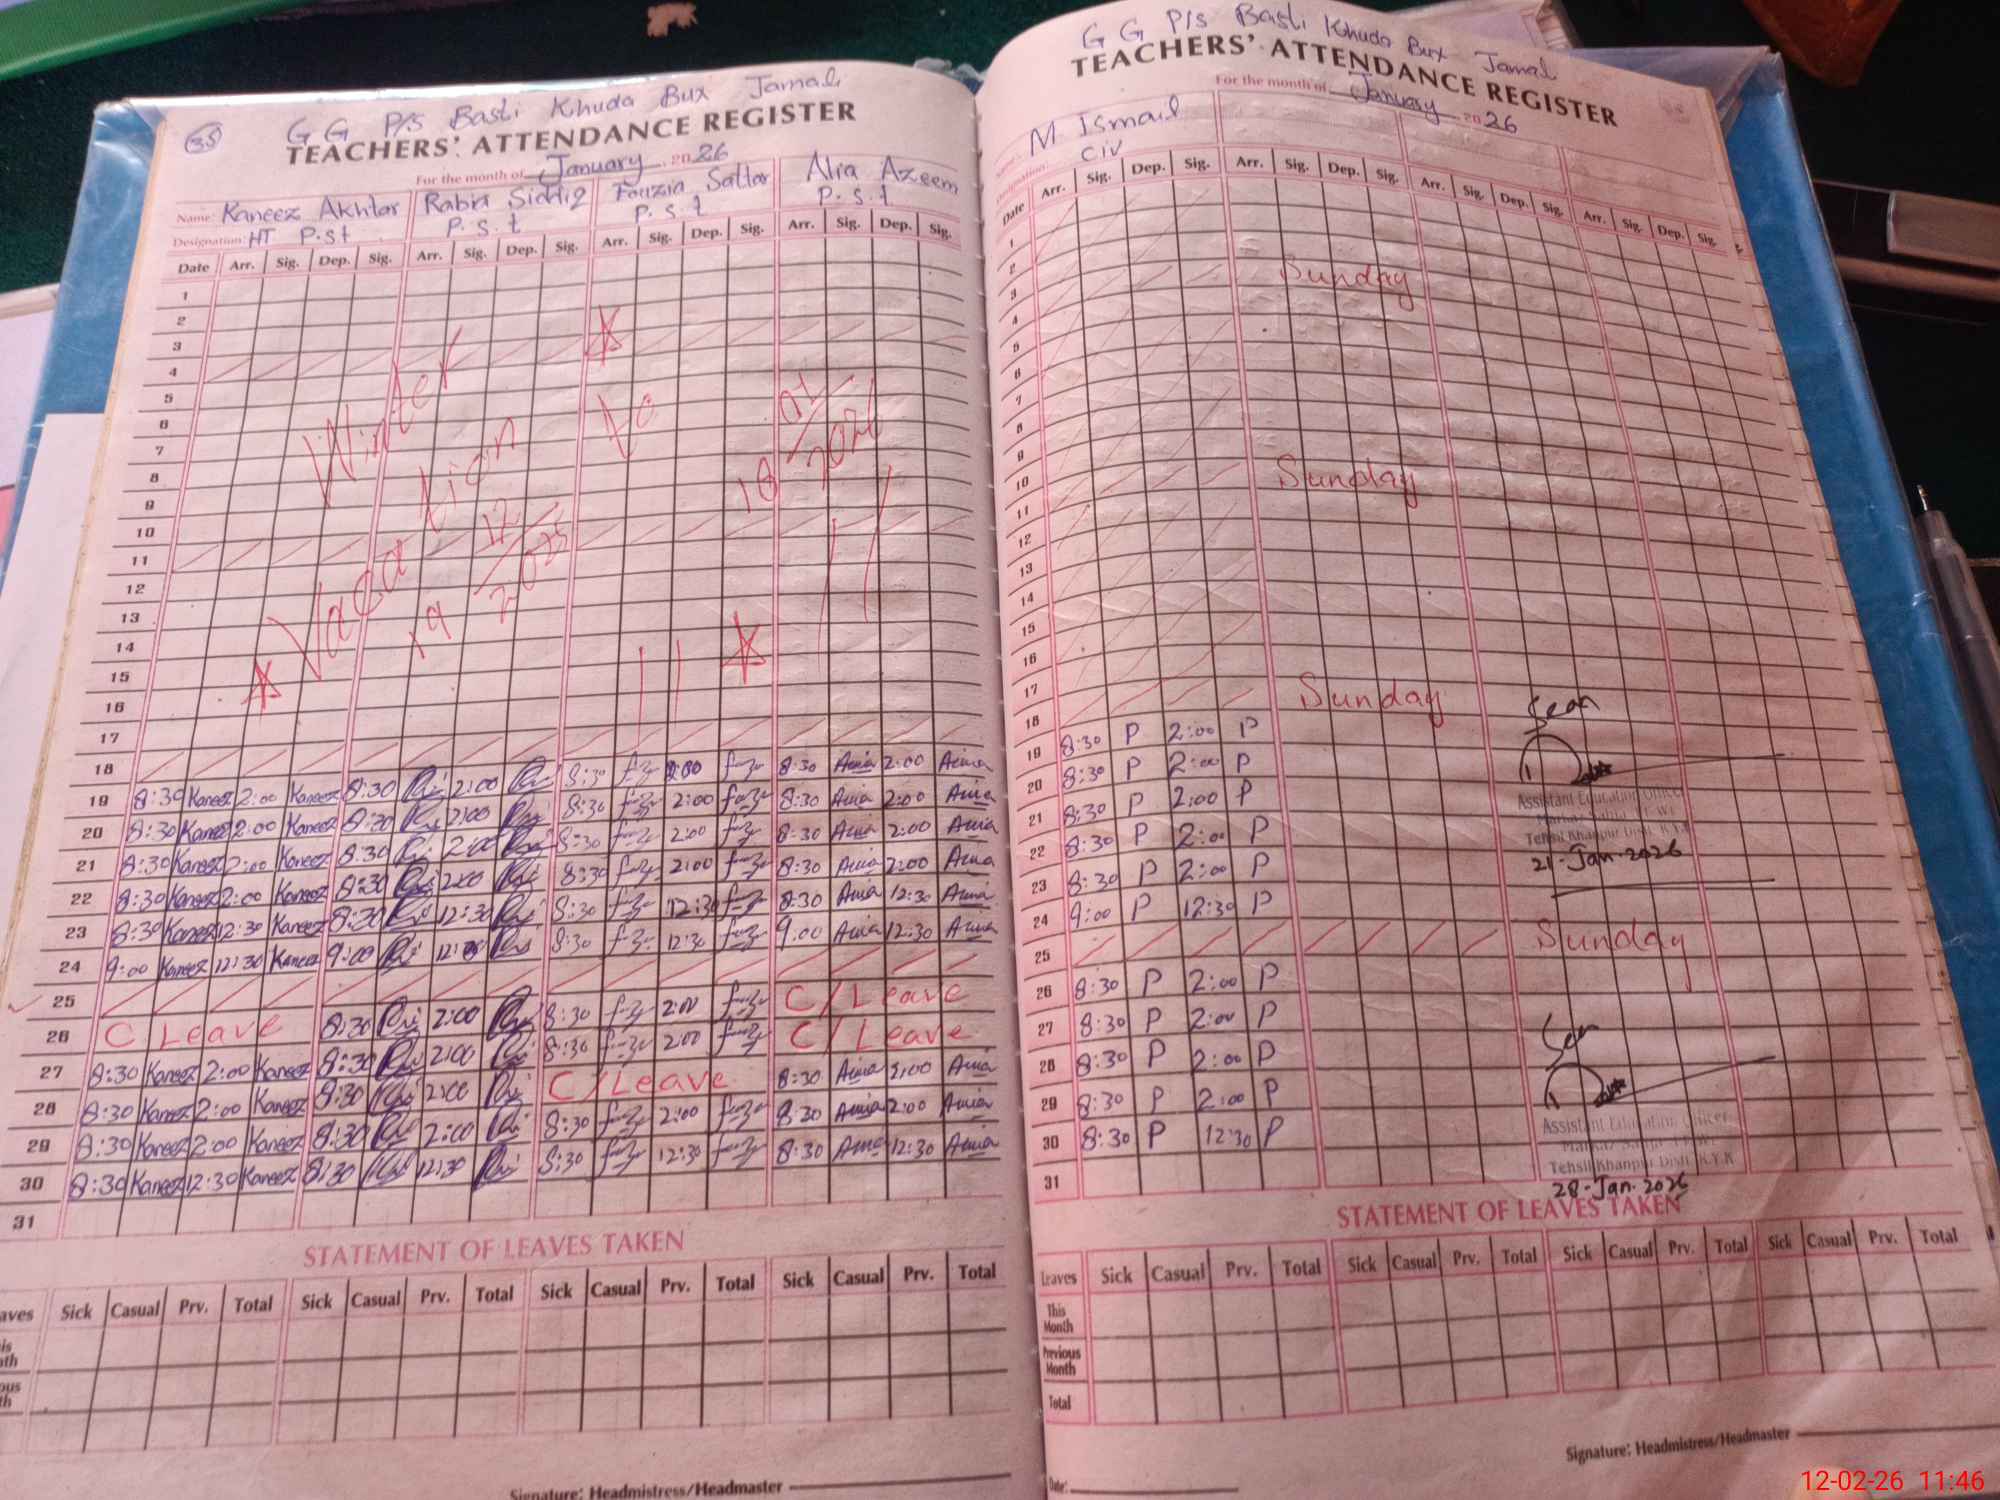 35
G G P/s Basti Khuda Bux Jamal
TEACHERS' ATTENDANCE REGISTER
For the month of January 2026
Name: Kaneez Akhtar Rabia Siddiq Fouzia Sattar Alia Azeem
Designation: HT P.st P.s.t P.s.t P.s.t
Date Arr. Sig. Dep. Sig. Arr. Sig. Dep. Sig. Arr. Sig. Dep. Sig. Arr. Sig. Dep. Sig.
1
2
3
4
5
6
7
8
9
10
11
12
13
14
15
16
17
18
Winter Vacation 19 12/2025 to 18 01/2026
19 8:30 Kaneez 2:00 Kaneez 8:30 2:00 8:30 2:00 8:30 2:00
20 8:30 Kaneez 2:00 Kaneez 8:30 2:00 8:30 2:00 8:30 2:00
21 8:30 Kaneez 2:00 Kaneez 8:30 2:00 8:30 2:00 8:30 2:00
22 8:30 Kaneez 2:00 Kaneez 8:30 2:00 8:30 2:00 8:30 2:00
23 8:30 Kaneez 12:30 Kaneez 8:30 12:30 8:30 12:30 8:30 12:30
24 9:00 Kaneez 12:30 Kaneez 9:00 8:30 12:30 9:00 12:30
25
26 C/Leave 8:30 2:00 8:30 2:00 C/Leave
27 8:30 Kaneez 2:00 Kaneez 8:30 2:00 8:30 2:00 C/Leave
28 8:30 Kaneez 2:00 Kaneez 8:30 2:00 C/Leave 8:30
29 8:30 Kaneez 2:00 Kaneez 8:30 2:00 8:30 2:00 8:30 2:00
30 8:30 Kaneez 12:30 Kaneez 8:30 12:30 8:30 12:30 8:30 12:30
31
STATEMENT OF LEAVES TAKEN
Sick Casual Prv. Total Sick Casual Prv. Total Sick Casual Prv. Total Sick Casual Prv. Total
Signature: Headmistress/Headmaster
G G P/s Basti Khuda Bux Jamal
TEACHERS' ATTENDANCE REGISTER
For the month of January 2026
M. Ismail
Designation: C iv
Date Arr. Sig. Dep. Sig. Arr. Sig. Dep. Sig. Arr. Sig. Dep. Sig. Arr. Sig. Dep. Sig.
1
2
3
Sunday
4
5
6
7
8
9
10
Sunday
11
12
13
14
15
16
17
Sunday
18
Seen
19 8:30 P 2:00 P
20 8:30 P 2:00 P
21 8:30 P 2:00 P
Assistant Education Officer
22 8:30 P 2:00 P
Tehsil Khanpur Distt. R.Y.K
23 8:30 P 2:00 P
21-Jan-2026
24 9:00 P 12:30 P
25 Sunday
26 8:30 P 2:00 P
27 8:30 P 2:00 P
Seen
28 8:30 P 2:00 P
29 8:30 P 2:00 P
30 8:30 P 12:30 P
Assistant Education Officer
31
Tehsil Khanpur Distt. R.Y.K
28-Jan-2026
STATEMENT OF LEAVES TAKEN
Leaves Sick Casual Prv. Total Sick Casual Prv. Total Sick Casual Prv. Total Sick Casual Prv. Total
This Month
Previous Month
Total
Signature: Headmistress/Headmaster
Date:
12-02-26 11:46